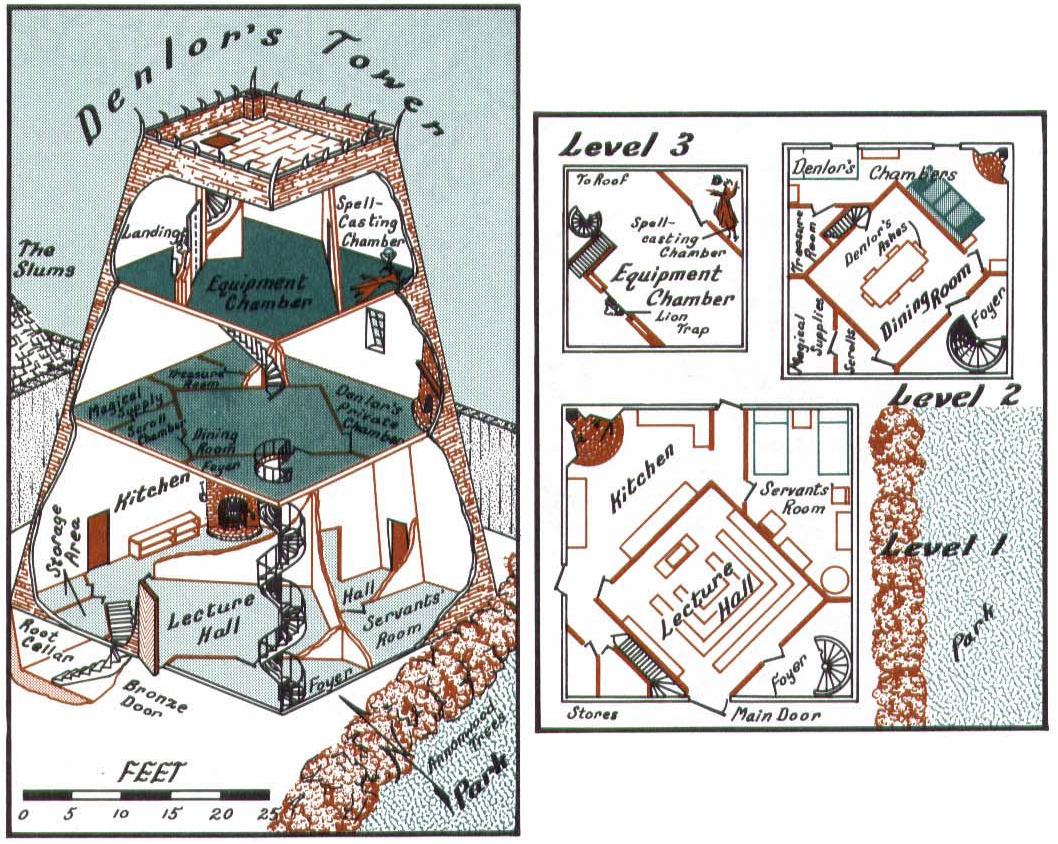 Denlor's Tower
The
Slums
Landing
Spell-
Casting
Chamber
Equipment
Chamber
Treasure
Room
Magical
Supply
Scroll
Chamber
Dining
Room
Foyer
Denlor's
Private
Chamber
Kitchen
Storage
Area
Lecture
Hall
Hall
Servants'
Room
Root
Cellar
Foyer
Bronze
Door
Annonwood
Trees
Park
FEET
0 5 10 15 20 25
Level 3
To Roof
Spell-
casting
Chamber
Equipment
Chamber
Lion
Trap
Denlor's Chambers
Treasure
Room
Denlor's
Ashes
Dining Room
Magical
Supplies
Scrolls
Foyer
Level 2
Kitchen
Servants'
Room
Level 1
Lecture
Hall
Park
Foyer
Stores
Main Door